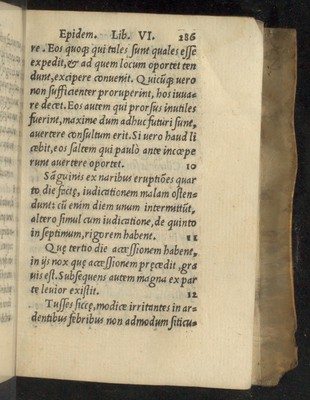 Epidem. Lib. VI. 286
re. Eos quoq; qui tales sunt quales esse
expedit, & ad quem locum oportet ten
dunt, excipere convenit. Quicūq; vero
non sufficienter proruperint, hos iuua-
re decet. Eos autem qui prorsus inutiles
fuerint, maxime dum adhuc futuri sunt,
auertere consultum erit. Si vero haud li
cebit, eos saltem qui paulò ante incœpe
runt auertere oportet. 10
Sāguinis ex naribus eruptiões quar
to die factę, iudicationem malam osten-
dunt: cū enim diem unum intermittūt,
altero simul cum iudicatione, de quinto
in septimum, rigorem habent. 11
Quę tertio die accessionem habent,
in ijs nox quę accessionem pręcedit, gra
uis est. Subsequens autem magna ex par
te leuior existit. 12
Tusses siccę, modicæ irritantes in ar-
dentibus febribus non admodum siticu-